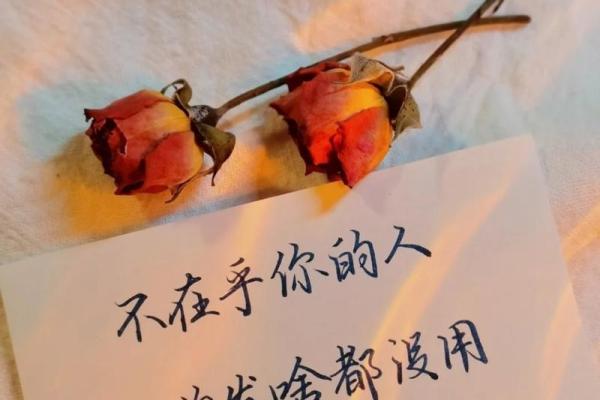 不在乎你的人
发啥都没用